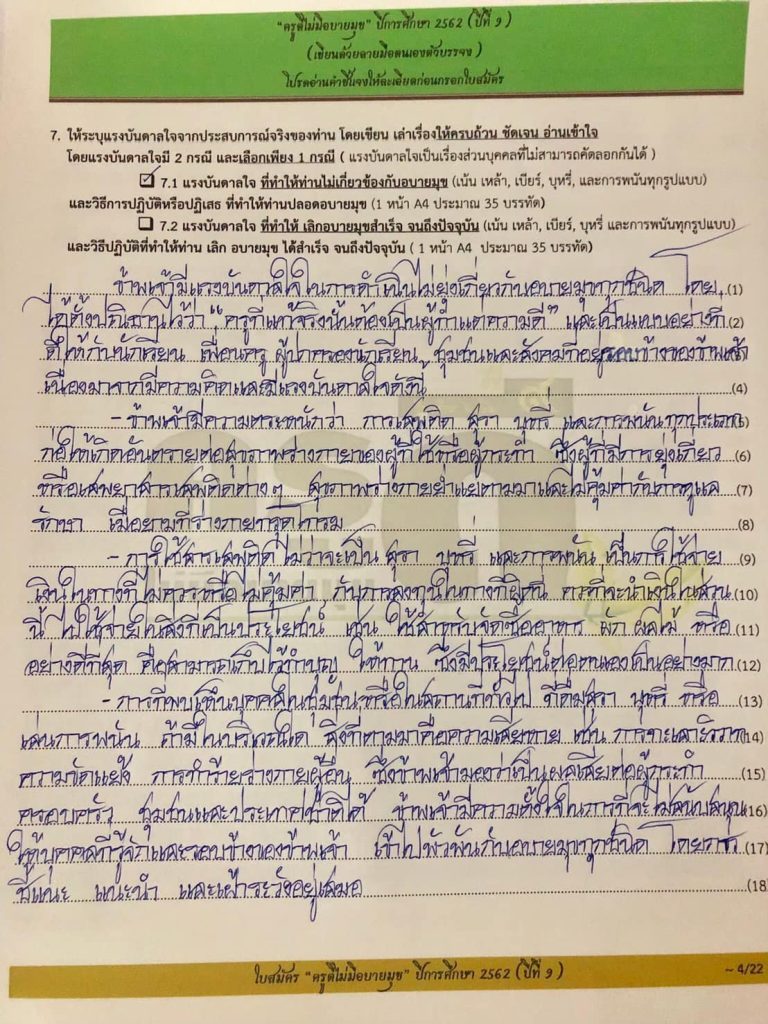 "ครูดีไม่มีอบายมุข" ปีการศึกษา 2562 (ปีที่ 9)
(เขียนด้วยลายมือตนเองตัวบรรจง)
โปรดอ่านคำชี้แจงให้ละเอียดก่อนกรอกใบสมัคร
7. ให้ระบุแรงบันดาลใจจากประสบการณ์จริงของท่าน โดยเขียน เล่าเรื่องให้ครบถ้วน ชัดเจน อ่านเข้าใจ
โดยแรงบันดาลใจมี 2 กรณี และเลือกเพียง 1 กรณี ( แรงบันดาลใจเป็นเรื่องส่วนบุคคลที่ไม่สามารถคัดลอกกันได้ )
7.1 แรงบันดาลใจ ที่ทำให้ท่านไม่เกี่ยวข้องกับอบายมุข (เน้น เหล้า, เบียร์, บุหรี่, และการพนันทุกรูปแบบ)
และวิธีการปฏิบัติหรือปฏิเสธ ที่ทำให้ท่านปลอดอบายมุข (1 หน้า A4 ประมาณ 35 บรรทัด)
7.2 แรงบันดาลใจ ที่ทำให้ เลิกอบายมุขสำเร็จ จนถึงปัจจุบัน (เน้น เหล้า, เบียร์, บุหรี่ และการพนันทุกรูปแบบ)
และวิธีปฏิบัติที่ทำให้ท่าน เลิก อบายมุข ได้สำเร็จ จนถึงปัจจุบัน ( 1 หน้า A4 ประมาณ 35 บรรทัด)
ข้าพเจ้ามีแรงบันดาลใจในการดำเนินไม่ยุ่งเกี่ยวกับอบายมุขทุกชนิด โดย (1)
ได้ตั้งปณิธานไว้ว่า "ครูที่แท้จริงนั้นต้องเป็นผู้ทำแต่ความดี" และเป็นแบบอย่างที่ (2)
ดีให้กับนักเรียน เพื่อนครู ผู้ปกครองนักเรียน ชุมชนและสังคมที่อยู่รอบข้างของข้าพเจ้า
เนื่องมาจากมีความคิดและมีแรงบันดาลใจดังนี้ (4)
- ข้าพเจ้ามีความตระหนักว่า การเสพติด สุรา บุหรี่ และการพนันทุกประเภท (5)
ก่อให้เกิดอันตรายต่อสุขภาพร่างกายของผู้ที่ใช้หรือผู้กระทำ ซึ่งผู้ที่มีการยุ่งเกี่ยว (6)
หรือเสพยาสารเสพติดต่าง ๆ สุขภาพร่างกายย่ำแย่ตามมาและไม่คุ้มค่ากับการดูแล (7)
รักษา เมื่อยามที่ร่างกายทรุดโทรม (8)
- การใช้สารเสพติด ไม่ว่าจะเป็น สุรา บุหรี่ และการพนัน เป็นการใช้จ่าย (9)
เงินในทางที่ไม่ควรหรือไม่คุ้มค่า กับการลงทุนในทางที่ผิดนี้ ควรที่จะนำเงินในส่วน (10)
นี้ ไปใช้จ่ายในสิ่งที่เป็นประโยชน์ เช่น ใช้สำหรับจัดซื้ออาหาร ผัก ผลไม้ หรือ (11)
อย่างดีที่สุด คือสามารถเก็บไว้ทำบุญ ให้ทาน ซึ่งมีประโยชน์ต่อตนเองเป็นอย่างมาก (12)
- การที่พบเห็นบุคคลในชุมชนหรือในสถานที่ทั่วไป ที่ดื่มสุรา บุหรี่ หรือ (13)
เล่นการพนัน ถ้ามีในบริเวณใด สิ่งที่ตามมาคือความเสียหาย เช่น การทะเลาะวิวาท (14)
ความขัดแย้ง การทำร้ายร่างกายผู้อื่น ซึ่งข้าพเจ้ามองว่าเป็นผลเสียต่อผู้กระทำ (15)
ครอบครัว ชุมชนและประเทศชาติได้ ข้าพเจ้ามีความตั้งใจในการที่จะไม่สนับสนุน (16)
ให้บุคคลที่รู้จักและรอบข้างของข้าพเจ้า เข้าไปพัวพันกับอบายมุขทุกชนิด โดยการ (17)
ชี้แนะ แนะนำ และเฝ้าระวังอยู่เสมอ (18)
ใบสมัคร "ครูดีไม่มีอบายมุข" ปีการศึกษา 2562 (ปีที่ 9)
~ 4/22